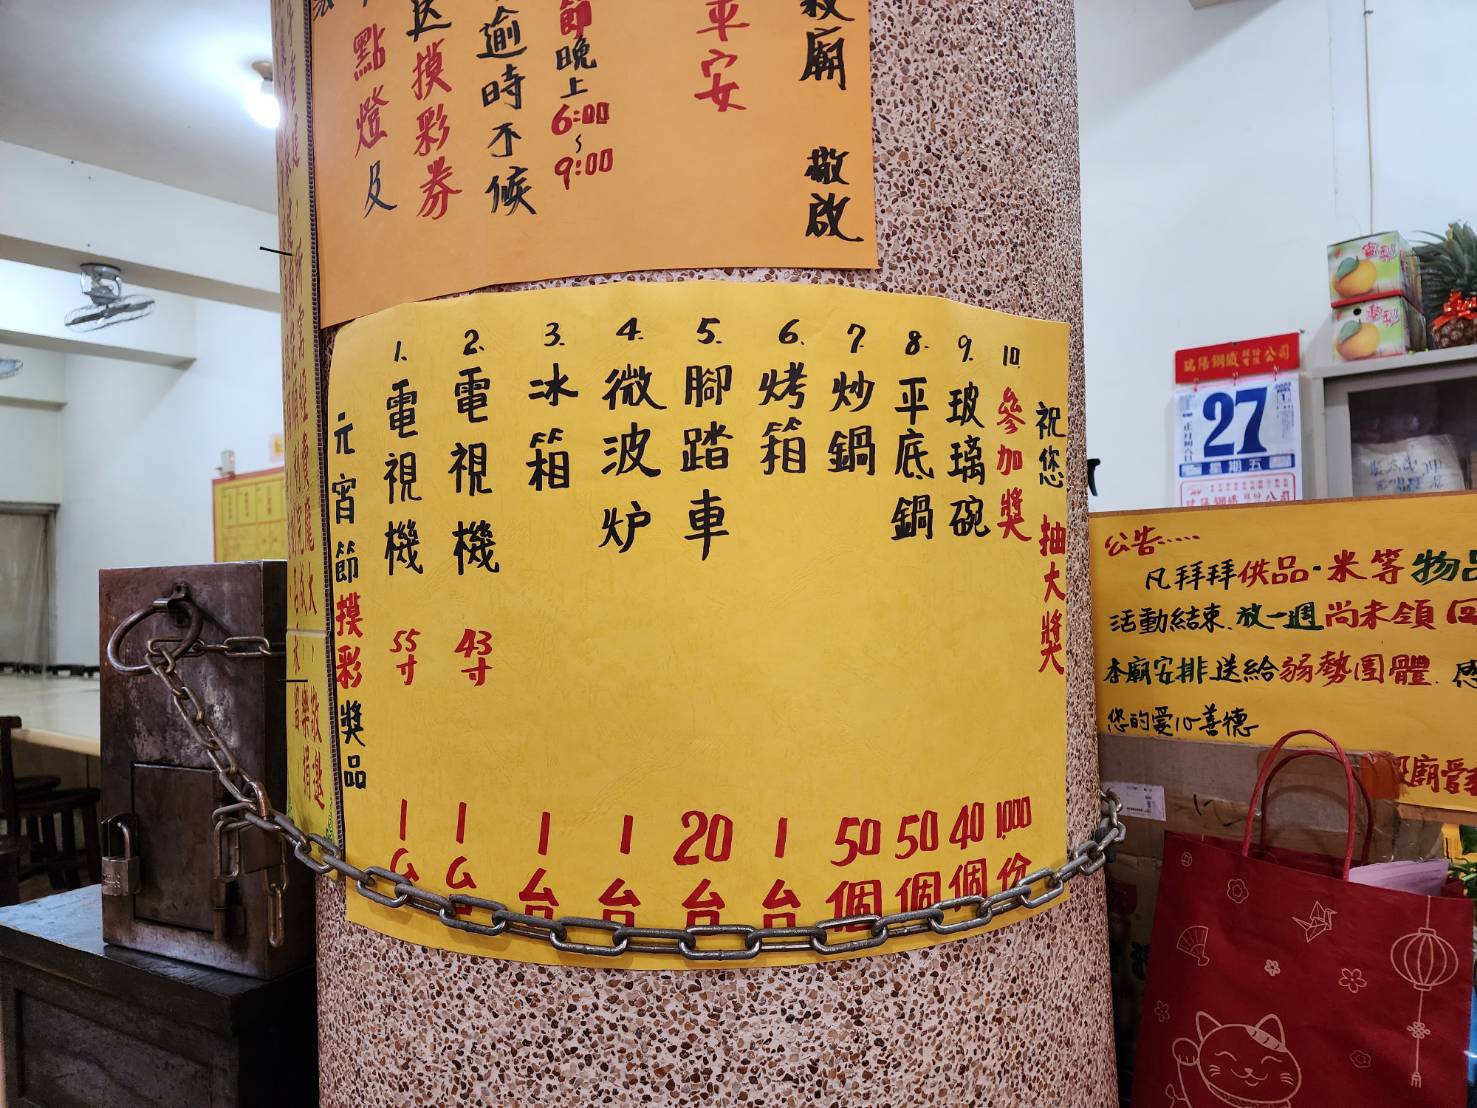 點燈及
送摸彩券
逾時不候
節晚上6:00~9:00
平安
敬啟
元宵節摸彩獎品
1. 電視機 55寸 1台
2. 電視機 43寸 1台
3. 冰箱 1台
4. 微波炉 1台
5. 腳踏車 20台
6. 烤箱 1台
7. 炒鍋 50個
8. 平底鍋 50個
9. 玻璃碗 40個
10 參加獎 1000份
祝您 抽大獎
瑞陽鋼鐵股份有限公司
27
星期五
公告....
凡拜拜供品·米等物品
活動結束.放一週尚未領回
本廟安排送給弱勢團體.感
您的愛心善德